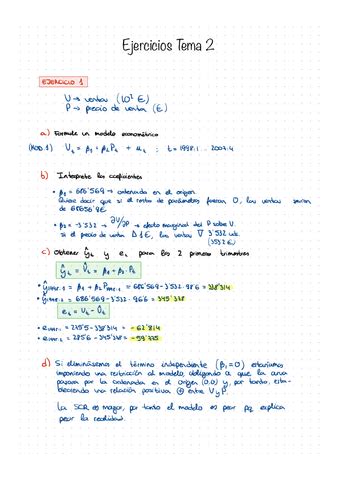 Ejercicios Tema 2
EJERCICIO 1
V → ventas (10³ €)
P → precio de venta (€)
a) Formule un modelo econométrico
(MOD. 1) Vt = β1 + β2Pt + ut ; t = 1998.1 ... 2007.4
b) Interprete los coeficientes
• β1 = 686'569 → ordenada en el origen.
Quiere decir que si el resto de parámetros fueran 0, las ventas serían
de
• β2 = -3'532 → ∂V/∂P → efecto marginal del P sobre V.
Si el precio de venta Δ 1 €, las ventas ∇ 3'532 uds.
(3532 €)
c) Obtener ŷt y et para los 2 primeros trimestres
ŷt = V̂t = β1 + β2 · Pt
= β1 + β2 = 686'569 - 3'532 · 98'6 = 338'314
= 686'569 - 3'532 · 96'6 = 345'378
et = Vt - V̂t
= 275'5 - 338'314 = -62'814
= - 345'378 =
d) Si eliminásemos el término independiente (β1 = 0) estaríamos
imponiendo una restricción al modelo, obligando a que la curva
pasara por la ordenada en el origen (0,0) y, por tanto, esta-
bleciendo una relación positiva ⊕ entre V y P.
La SCR es mayor, por tanto el modelo es peor pq explica
peor la realidad.